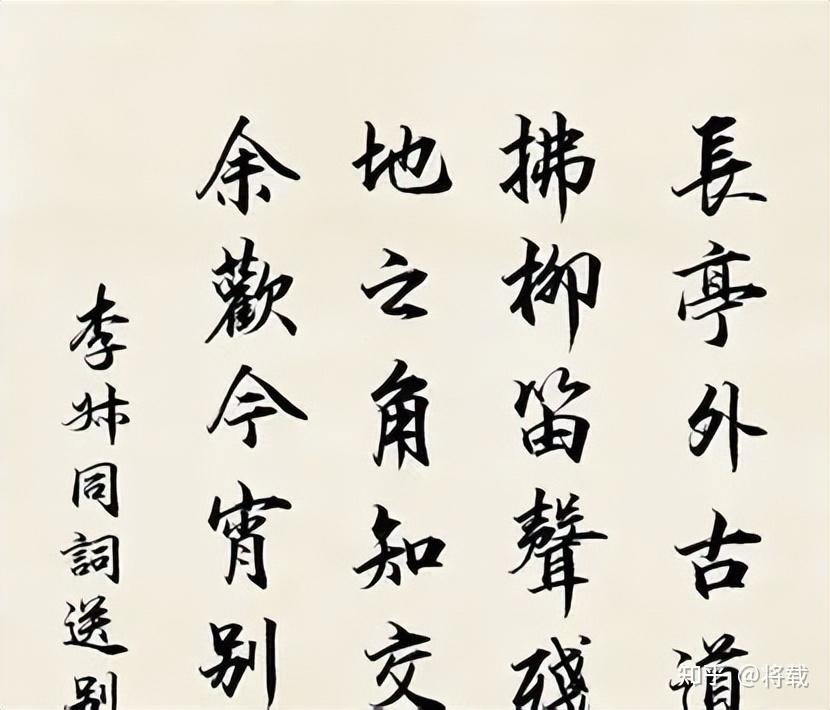 長亭外古道
拂柳笛聲殘
地之角知交
余歡今宵别
李叔同詞送别
知乎 @将载